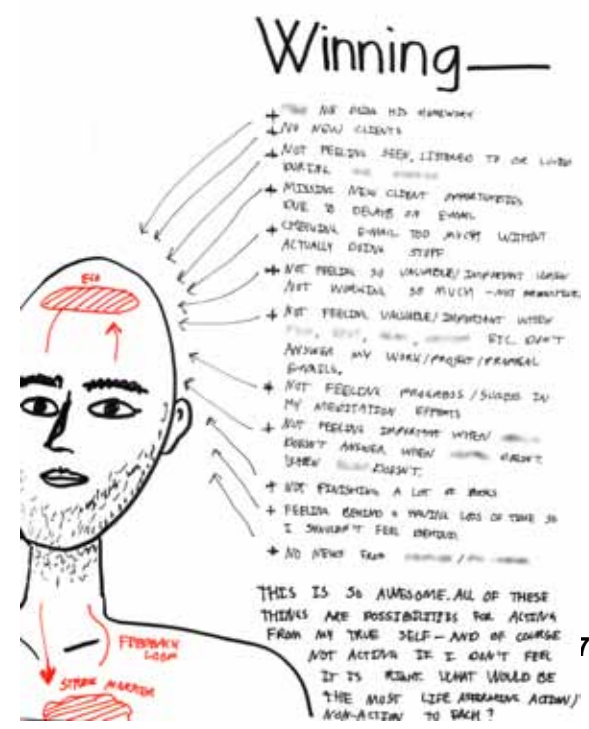 Winning
+ NOT DOING HIS HOMEWORK
+ NO NEW CLIENTS
+ NOT FEELING SEEN, LISTENED TO OR LOVED
DURING
+ MISSING NEW CLIENT OPPORTUNITIES
DUE TO DELAYS ON E-MAIL
+ CHECKING E-MAIL TOO MUCH WITHOUT
ACTUALLY DOING STUFF
+ NOT FEELING SO VALUABLE/IMPORTANT WHEN
NOT WORKING SO MUCH - NOT
+ NOT FEELING VALUABLE/IMPORTANT WHEN
ETC. DON'T
ANSWER MY WORK/PROJECT/PROPOSAL
E-MAILS.
+ NOT FEELING PROGRESS/SUCCESS IN
MY MEDITATION EFFORTS
+ NOT FEELING IMPORTANT WHEN
DOESN'T ANSWER WHEN DOESN'T
WHEN DOESN'T.
+ NOT FINISHING A LOT OF BOOKS
+ FEELING BEHIND + HAVING LOTS OF TIME SO
I SHOULDN'T FEEL BEHIND
+ NO NEWS FROM /
EGO
THIS IS SO AWESOME. ALL OF THESE
THINGS ARE POSSIBILITIES FOR ACTING
FROM MY TRUE SELF - AND OF COURSE
NOT ACTING IF I DON'T FEEL
IT IS RIGHT. WHAT WOULD BE
THE MOST LIFE AFFIRMING ACTION/
NON-ACTION TO EACH?
7
FEEDBACK
LOOP